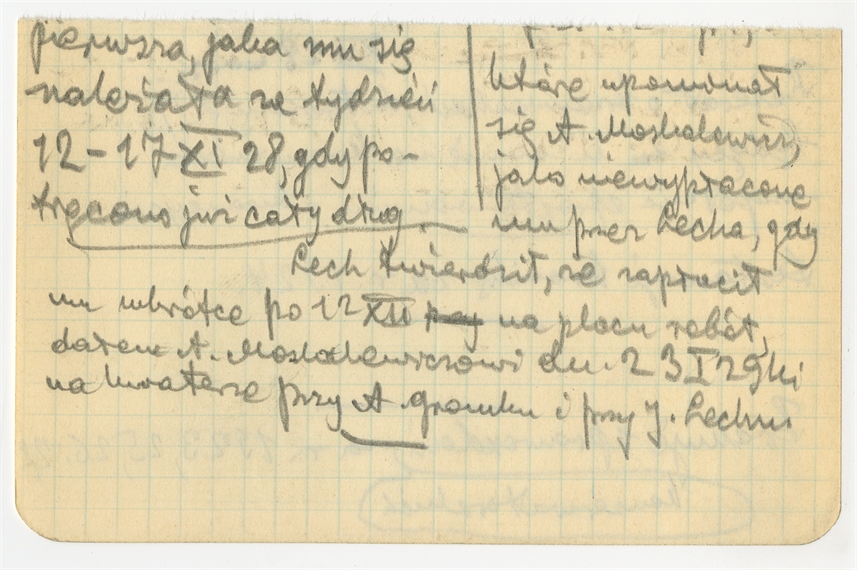 pierwsza, jaka mu się
należała za tydzień
12–17 XI 28, gdy po-
trącono już cały dług.
które upominał
się A. Moskalewicz,
jako niewypłacone
mu przez Lecha, gdy
Lech twierdził, że zapłacił
mu wkrótce po 12 XII na placu robót,
dałem A. Moskalewiczowi dn. 23 I 29 ki
na kwaterze przy A. Gromku i przy J. Lechu.